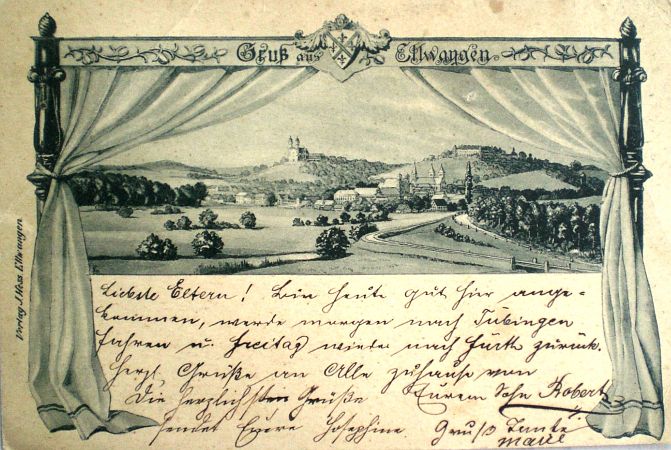 Gruß aus Ellwangen.
Verlag J. Hess Ellwangen
Liebste Eltern! Bin heute gut hier ange-
kommen, werde morgen nach Tübingen
fahren u. Freitag wieder nach Fürth zurück.
Herzl. Grüße an Alle zuhause von
Die herzlichsten Grüße Eurem Sohn Robert
sendet Euere Josephine. Gruß Tante
Marie